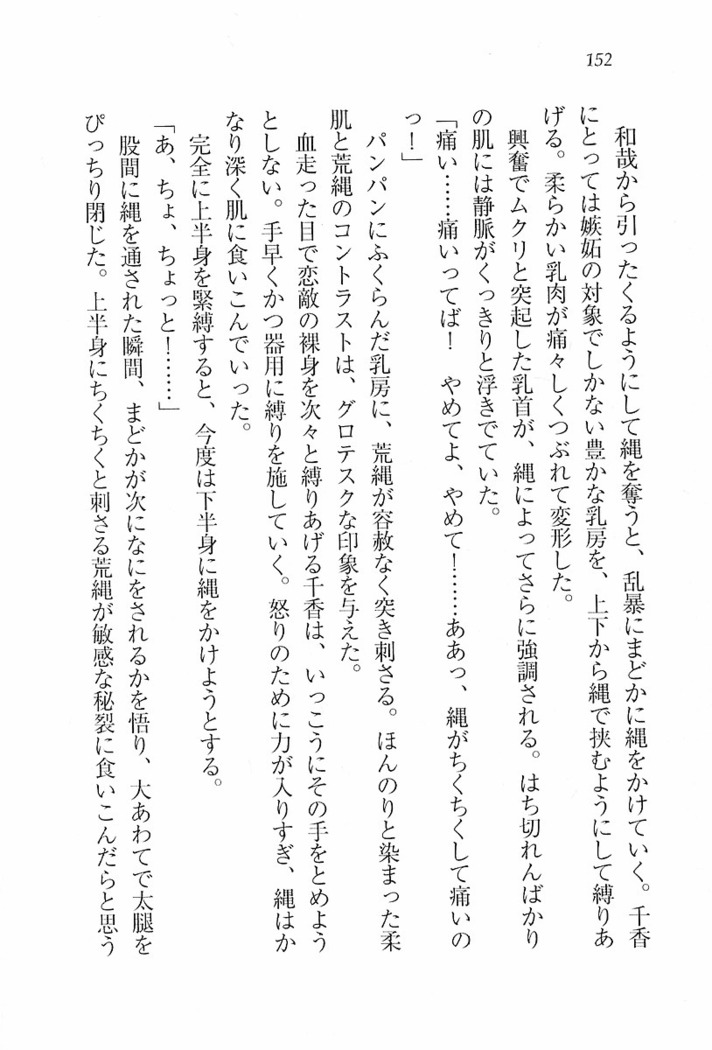 152
和哉から引ったくるようにして縄を奪うと、乱暴にまどかに縄をかけていく。千香
にとっては嫉妬の対象でしかない豊かな乳房を、上下から縄で挟むようにして縛りあ
げる。柔らかい乳肉が痛々しくつぶれて変形した。
興奮でムクリと突起した乳首が、縄によってさらに強調される。はち切れんばかり
の肌には静脈がくっきりと浮きでていた。
「痛い……痛いってば！　やめてよ、やめて！……ああっ、縄がちくちくして痛いの
っ！」
パンパンにふくらんだ乳房に、荒縄が容赦なく突き刺さる。ほんのりと染まった柔
肌と荒縄のコントラストは、グロテスクな印象を与えた。
血走った目で恋敵の裸身を次々と縛りあげる千香は、いっこうにその手をとめよう
としない。手早くかつ器用に縛りを施していく。怒りのために力が入りすぎ、縄はか
なり深く肌に食いこんでいった。
完全に上半身を緊縛すると、今度は下半身に縄をかけようとする。
「あ、ちょ、ちょっと！……」
股間に縄を通された瞬間、まどかが次になにをされるかを悟り、大あわてで太腿を
ぴっちり閉じた。上半身にちくちくと刺さる荒縄が敏感な秘裂に食いこんだらと思う